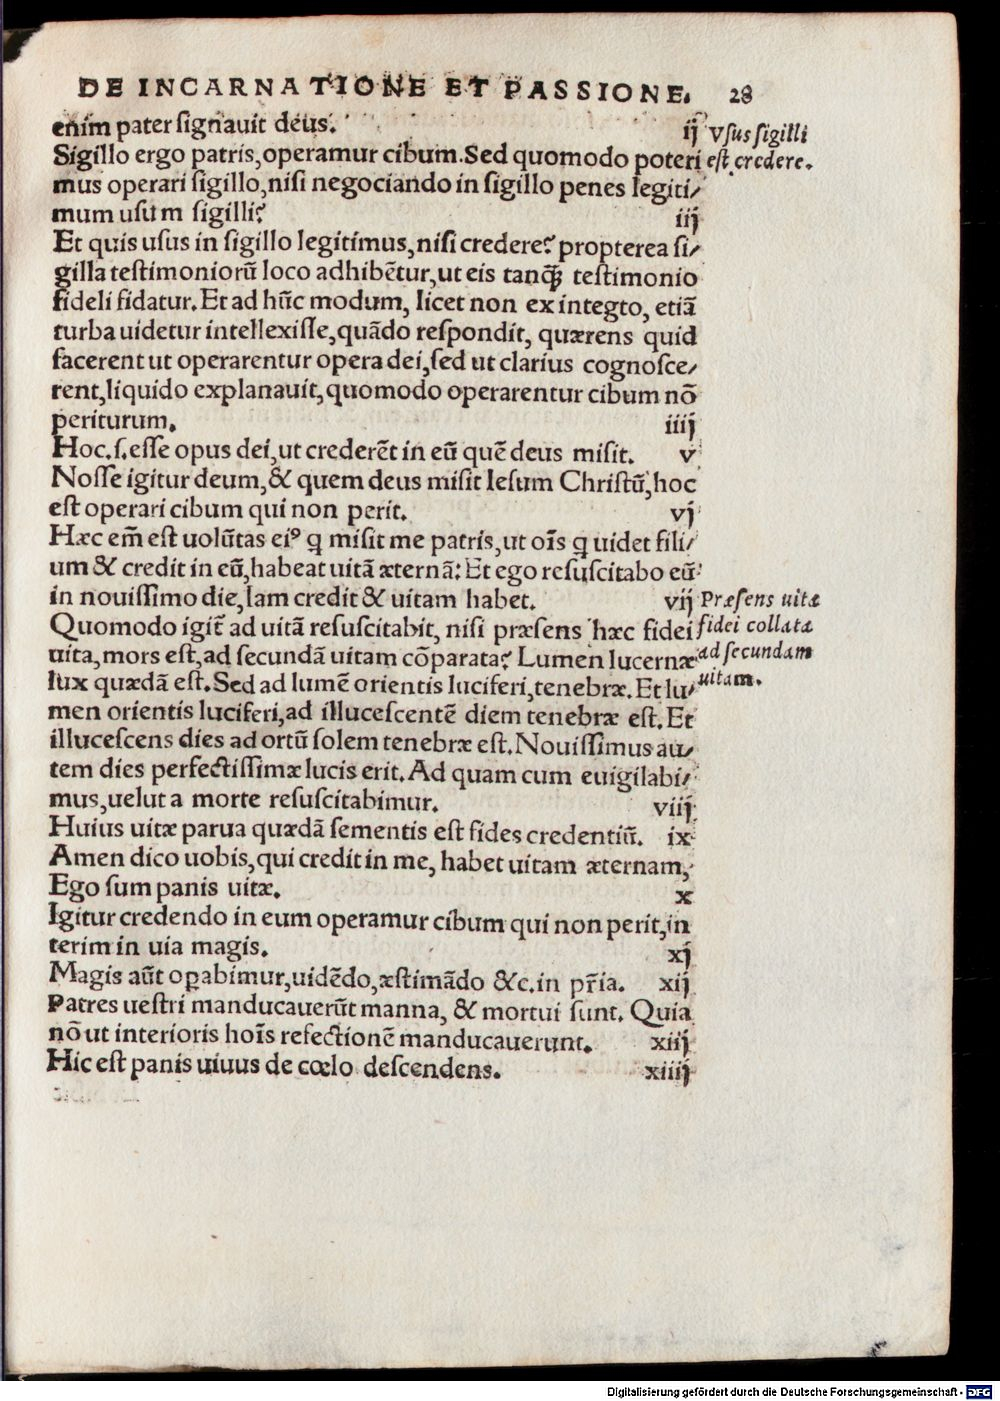 DE INCARNATIONE ET PASSIONE. 28
enim pater ſignauit deus. ij
Vſus ſigilli
Sigillo ergo patris,operamur cibum.Sed quomodo poteri
eſt credere.
mus operari ſigillo,niſi negociando in ſigillo penes legiti/
mum uſum ſigilli? iij
Et quis uſus in ſigillo legitimus,niſi credere? propterea ſi/
gilla teſtimoniorū loco adhibētur,ut eis tanꝗ̃ teſtimonio
fideli fidatur.Et ad hūc modum, licet non ex integto, etiā
turba uidetur intellexiſſe,quādo reſpondit, quærens quid
facerent ut operarentur opera dei,ſed ut clarius cognoſce/
rent,liquido explanauit,quomodo operarentur cibum nō
periturum. iiij
Hoc.ſ.eſſe opus dei,ut crederēt in eū quē deus miſit. v
Noſſe igitur deum,& quem deus miſit Ieſum Chriſtū,hoc
eſt operari cibum qui non perit. vj
Hæc em̄ eſt uolūtas eiꝰ q miſit me patris,ut oīs q uidet fili/
um & credit in eū,habeat uitā æternā: Et ego reſuſcitabo eū
in nouiſſimo die,Iam credit & uitam habet. vij
Præſens uitæ
Quomodo igit̄ ad uitā reſuſcitabit, niſi præſens hæc fidei
fidei collata
uita,mors eſt,ad ſecundā uitam cōparata? Lumen lucernæ
ad ſecundam
lux quædā eſt.Sed ad lumē orientis luciferi,tenebræ.Et lu/
uitam.
men orientis luciferi,ad illuceſcentē diem tenebræ eſt.Et
illuceſcens dies ad ortū ſolem tenebræ eſt.Nouiſſimus au/
tem dies perfectiſſimæ lucis erit.Ad quam cum euigilabi/
mus,uelut a morte reſuſcitabimur. viij
Huius uitæ parua quædā ſementis eſt fides credentiū. ix
Amen dico uobis,qui credit in me, habet uitam æternam,
Ego ſum panis uitæ. x
Igitur credendo in eum operamur cibum qui non perit,in
terim in uia magis. xj
Magis aūt oꝑabimur,uidēdo,æſtimādo &c.in pr̄ia. xij
Patres ueſtri manducauerūt manna, & mortui ſunt. Quia
nō ut interioris hoīs refectionē manducauerunt. xiij
Hic eſt panis uiuus de cœlo deſcendens. xiiij
Digitalisierung gefördert durch die Deutsche Forschungsgemeinschaft - DFG